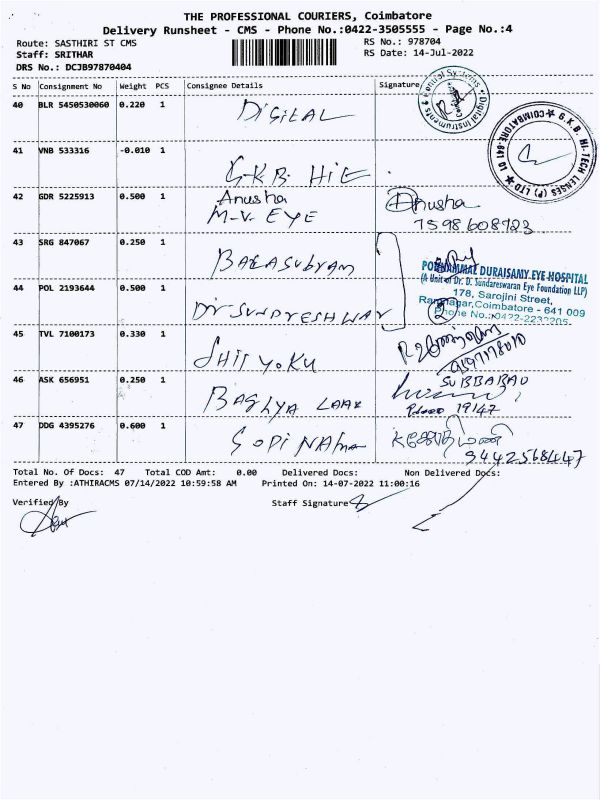 THE PROFESSIONAL COURIERS, Coimbatore
Delivery Runsheet - CMS - Phone No.:0422-3505555 - Page No.:4
Route: SASTHIRI ST CMS RS No.: 978704
Staff: SRITHAR RS Date: 14-Jul-2022
DRS No.: DCJB97870404
S No Consignment No Weight PCS Consignee Details Signature
40 BLR 5450530060 0.220 1 DIGITAL
Digital Instruments & Control Systems
41 VNB 533316 -0.010 1 G.K.B. HIE
G.K.B. HI-TECH LENSES (P) LTD COIMBATORE-641 01
42 GDR 5225913 0.500 1 Anusha Anusha
M.V. EYE 7598608923
43 SRG 847067 0.250 1 BALASUBRAM
44 POL 2193644 0.500 1 Dr SUNDRESHWAR
DURAISAMY EYE HOSPITAL
(A Unit of Dr. D. Sundareswaran Eye Foundation LLP)
178, Sarojini Street,
Ramnagar, Coimbatore - 641 009
Phone No.:0422-2232205
2
45 TVL 7100173 0.330 1
46 ASK 656951 0.250 1 BAGHYA LAAX SUBBARAO
19147
47 DDG 4395276 0.600 1 GOPINATH
9442568447
Total No. Of Docs: 47 Total COD Amt: 0.00 Delivered Docs: Non Delivered Docs:
Entered By :ATHIRACMS 07/14/2022 10:59:58 AM Printed On: 14-07-2022 11:00:16
Verified By Staff Signature